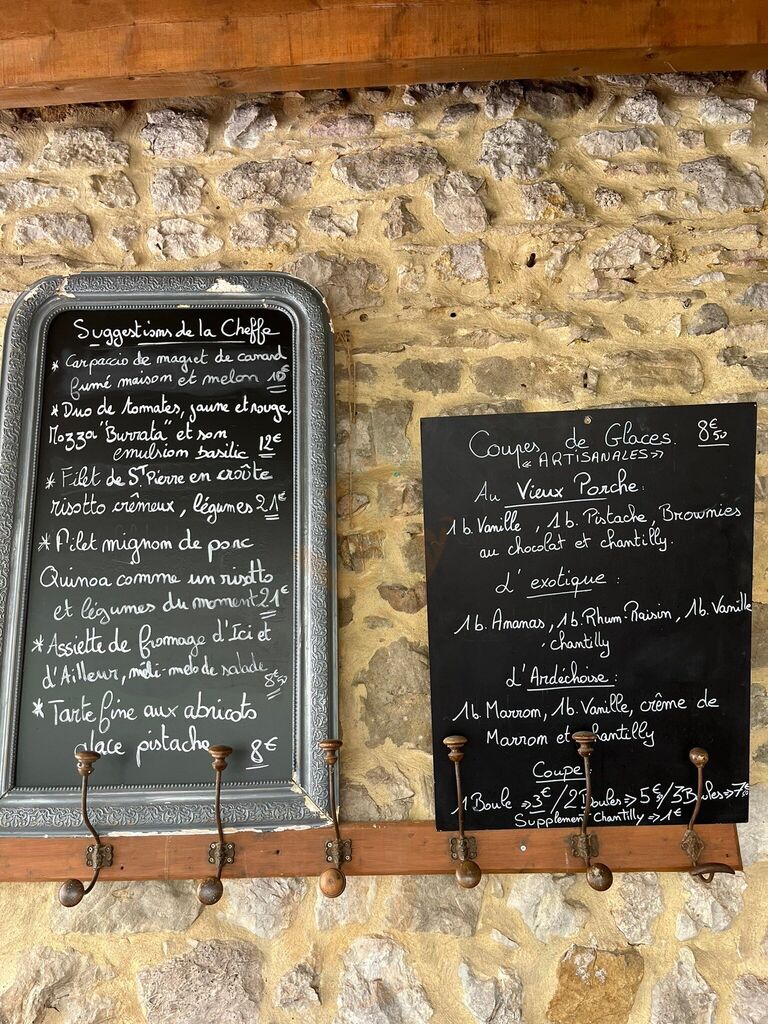 Suggestions de la Cheffe
* Carpaccio de magret de canard
fumé maison et melon 10€
* Duo de tomates, jaune et rouge,
Mozza "Burrata" et son
emulsion basilic 12€
* Filet de St Pierre en croûte
risotto crêmeux, légumes 21€
* Filet mignon de porc
Quinoa comme un risotto
et légumes du moment 21€
* Assiette de fromage d'Ici et
d'Ailleur, méli-melo de salade
8€50
* Tarte fine aux abricots
glace pistache 8€
Coupes de Glaces 8€50
"ARTISANALES"
Au Vieux Porche :
1b. Vanille, 1b. Pistache, Brownies
au chocolat et chantilly.
L'exotique :
1b. Ananas, 1b. Rhum-Raisin, 1b. Vanille
chantilly
L'Ardéchoise :
1b Marron, 1b. Vanille, crême de
Marron et chantilly
Coupe :
1 Boule => 3€ / 2 Boules => 5€ / 3 Boules => 7€
Supplement Chantilly => 1€